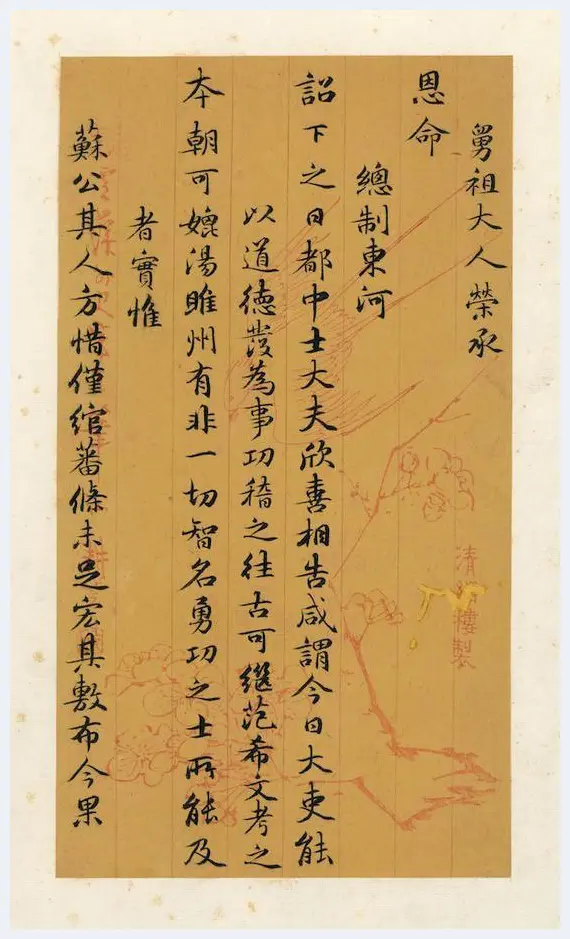 舅祖大人榮承
恩命
總制東河
詔下之日都中士大夫欣喜相告咸謂今日大吏能
以道德發為事功稽之往古可繼范希文考之
本朝可媲湯睢州有非一切智名勇功之士所能及
者實惟
蘇公其人方惜僅綰蕃條未足宏其敷布今果
清樓製